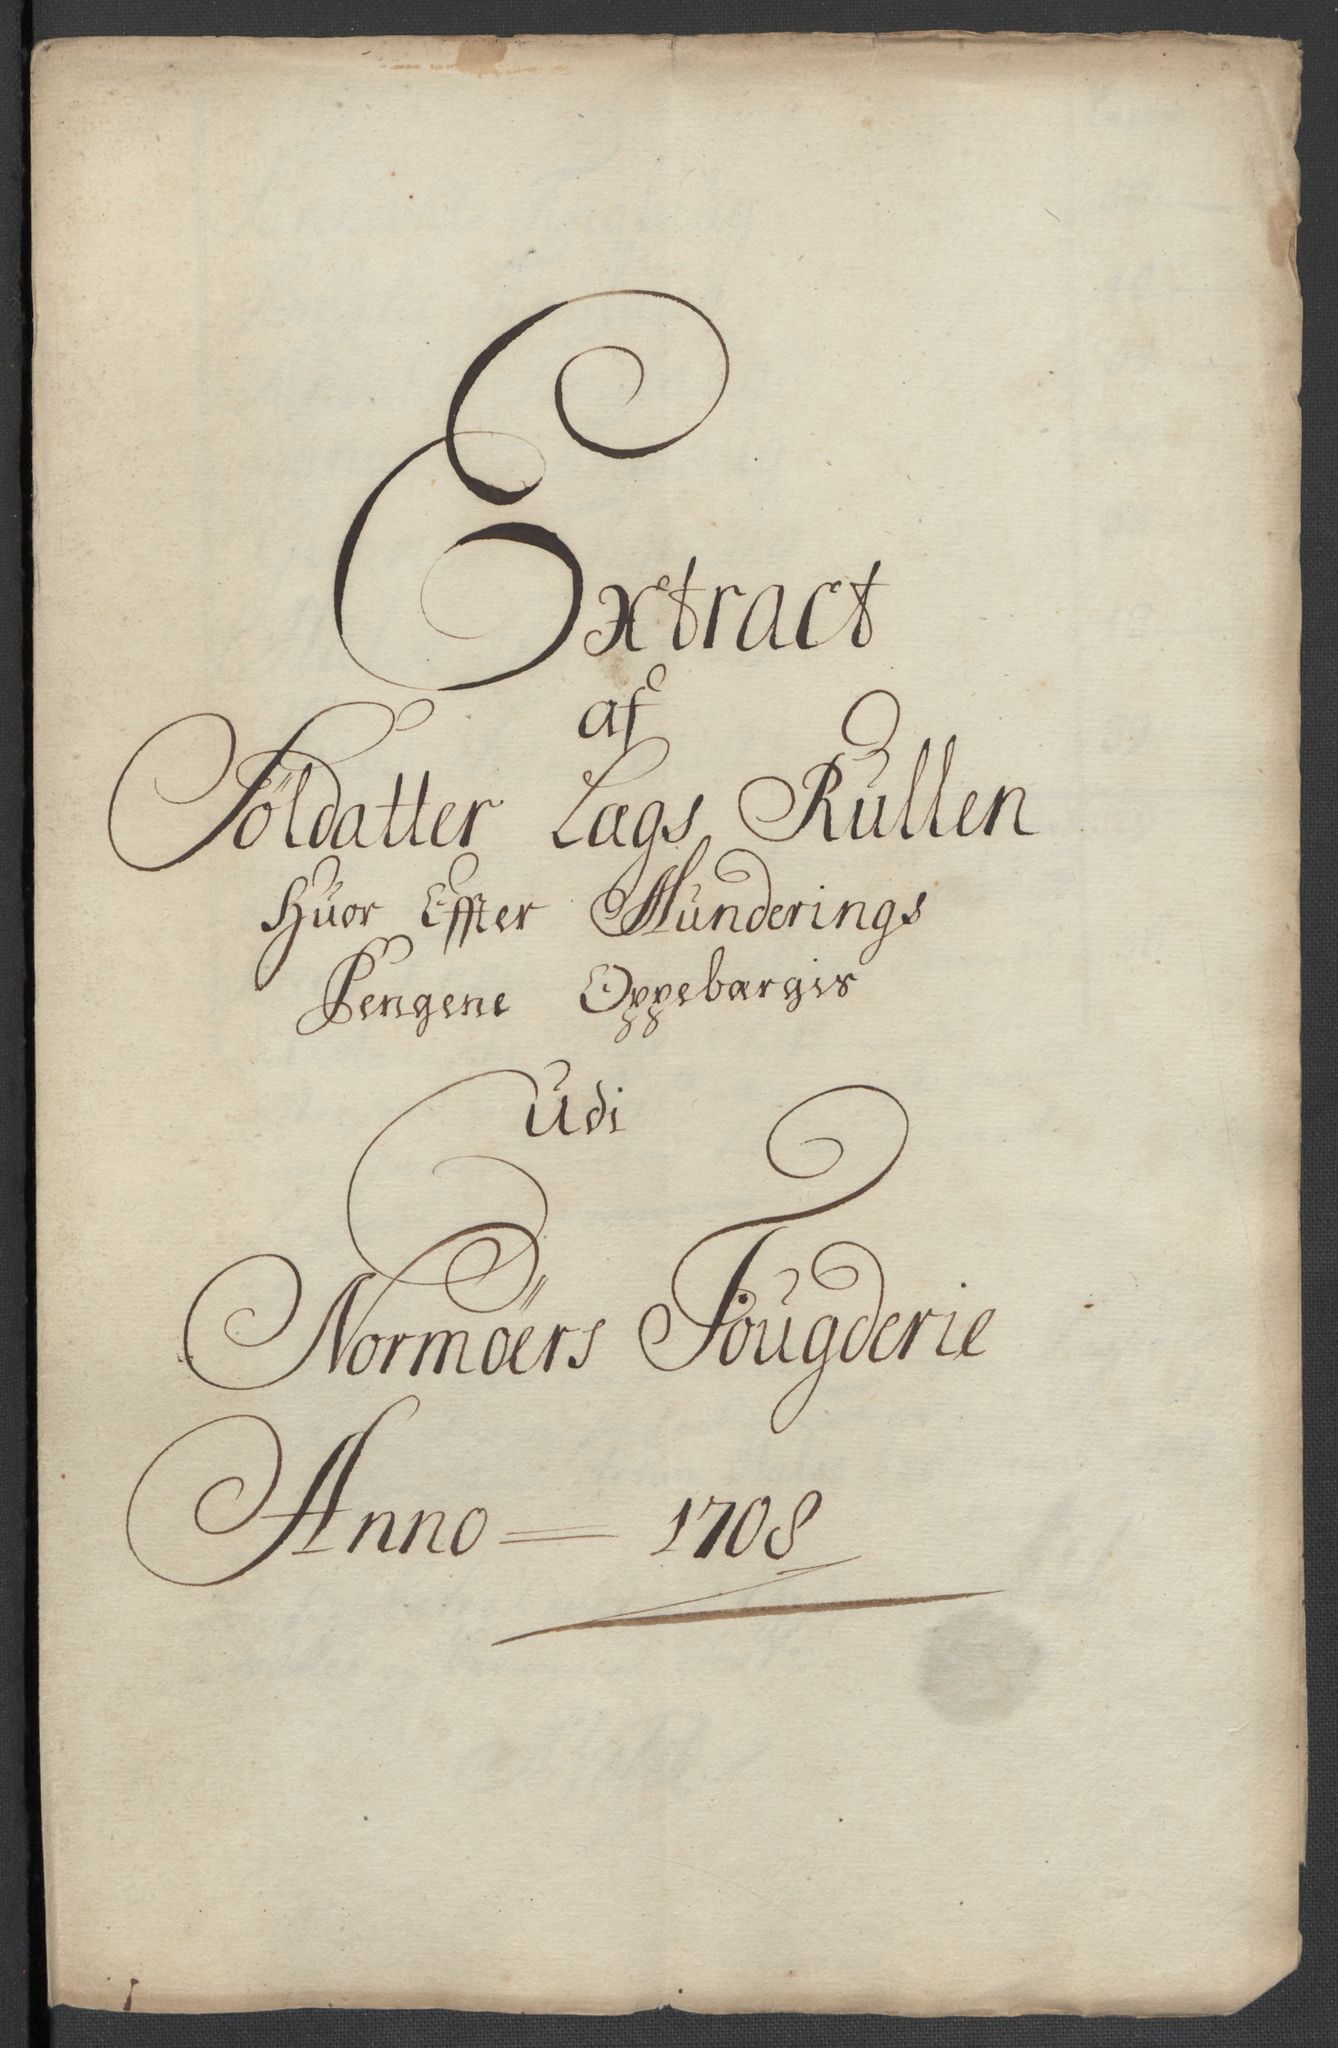 Extract
af
Söldatter Lags Rullen
Huor Effter Munderings
Pengene Oppebærgis
Udi
Normöers Fougderie
Anno 1708